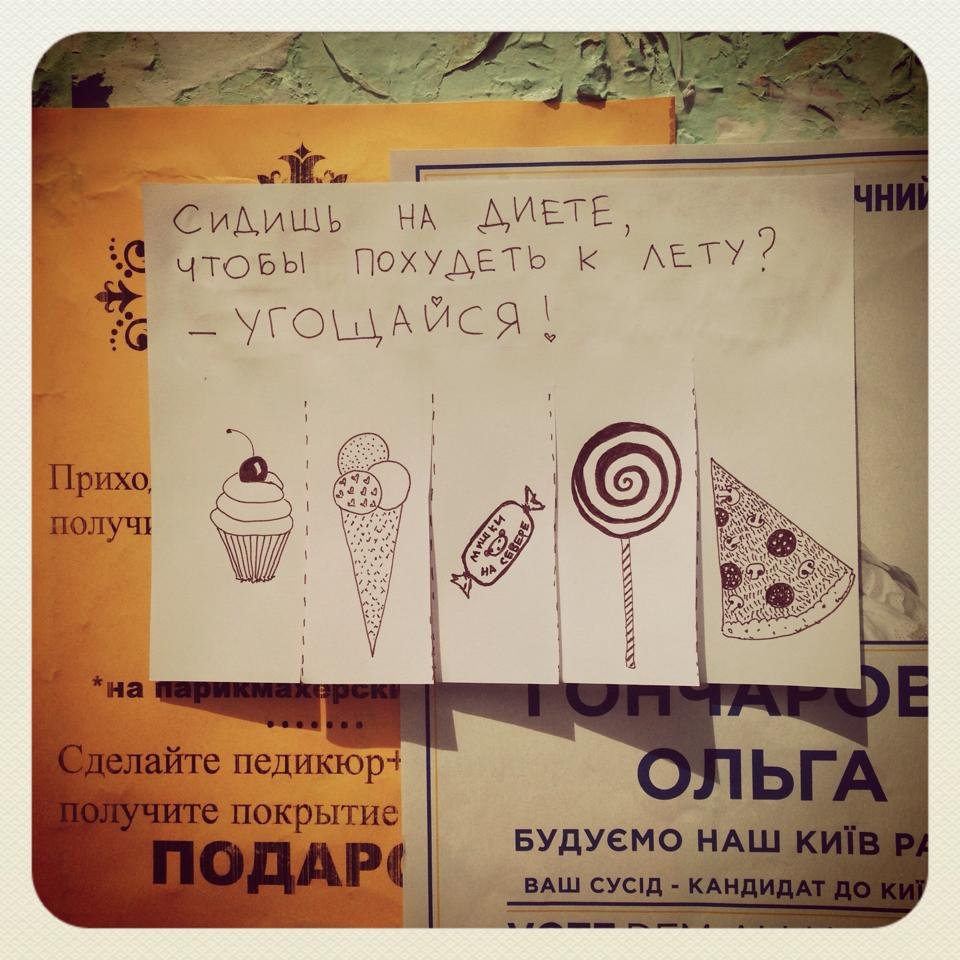 СИДИШЬ НА ДИЕТЕ,
ЧТОБЫ ПОХУДЕТЬ К ЛЕТУ?
– УГОЩАЙСЯ!
МИШКИ
НА СЕВЕРЕ
*на парикмахерски
Сделайте педикюр+
получите покрытие
ПОДАРО
ЧНИЙ
ГОНЧАРОВ
ОЛЬГА
БУДУЄМО НАШ КИЇВ РА
ВАШ СУСІД - КАНДИДАТ ДО КИЇ